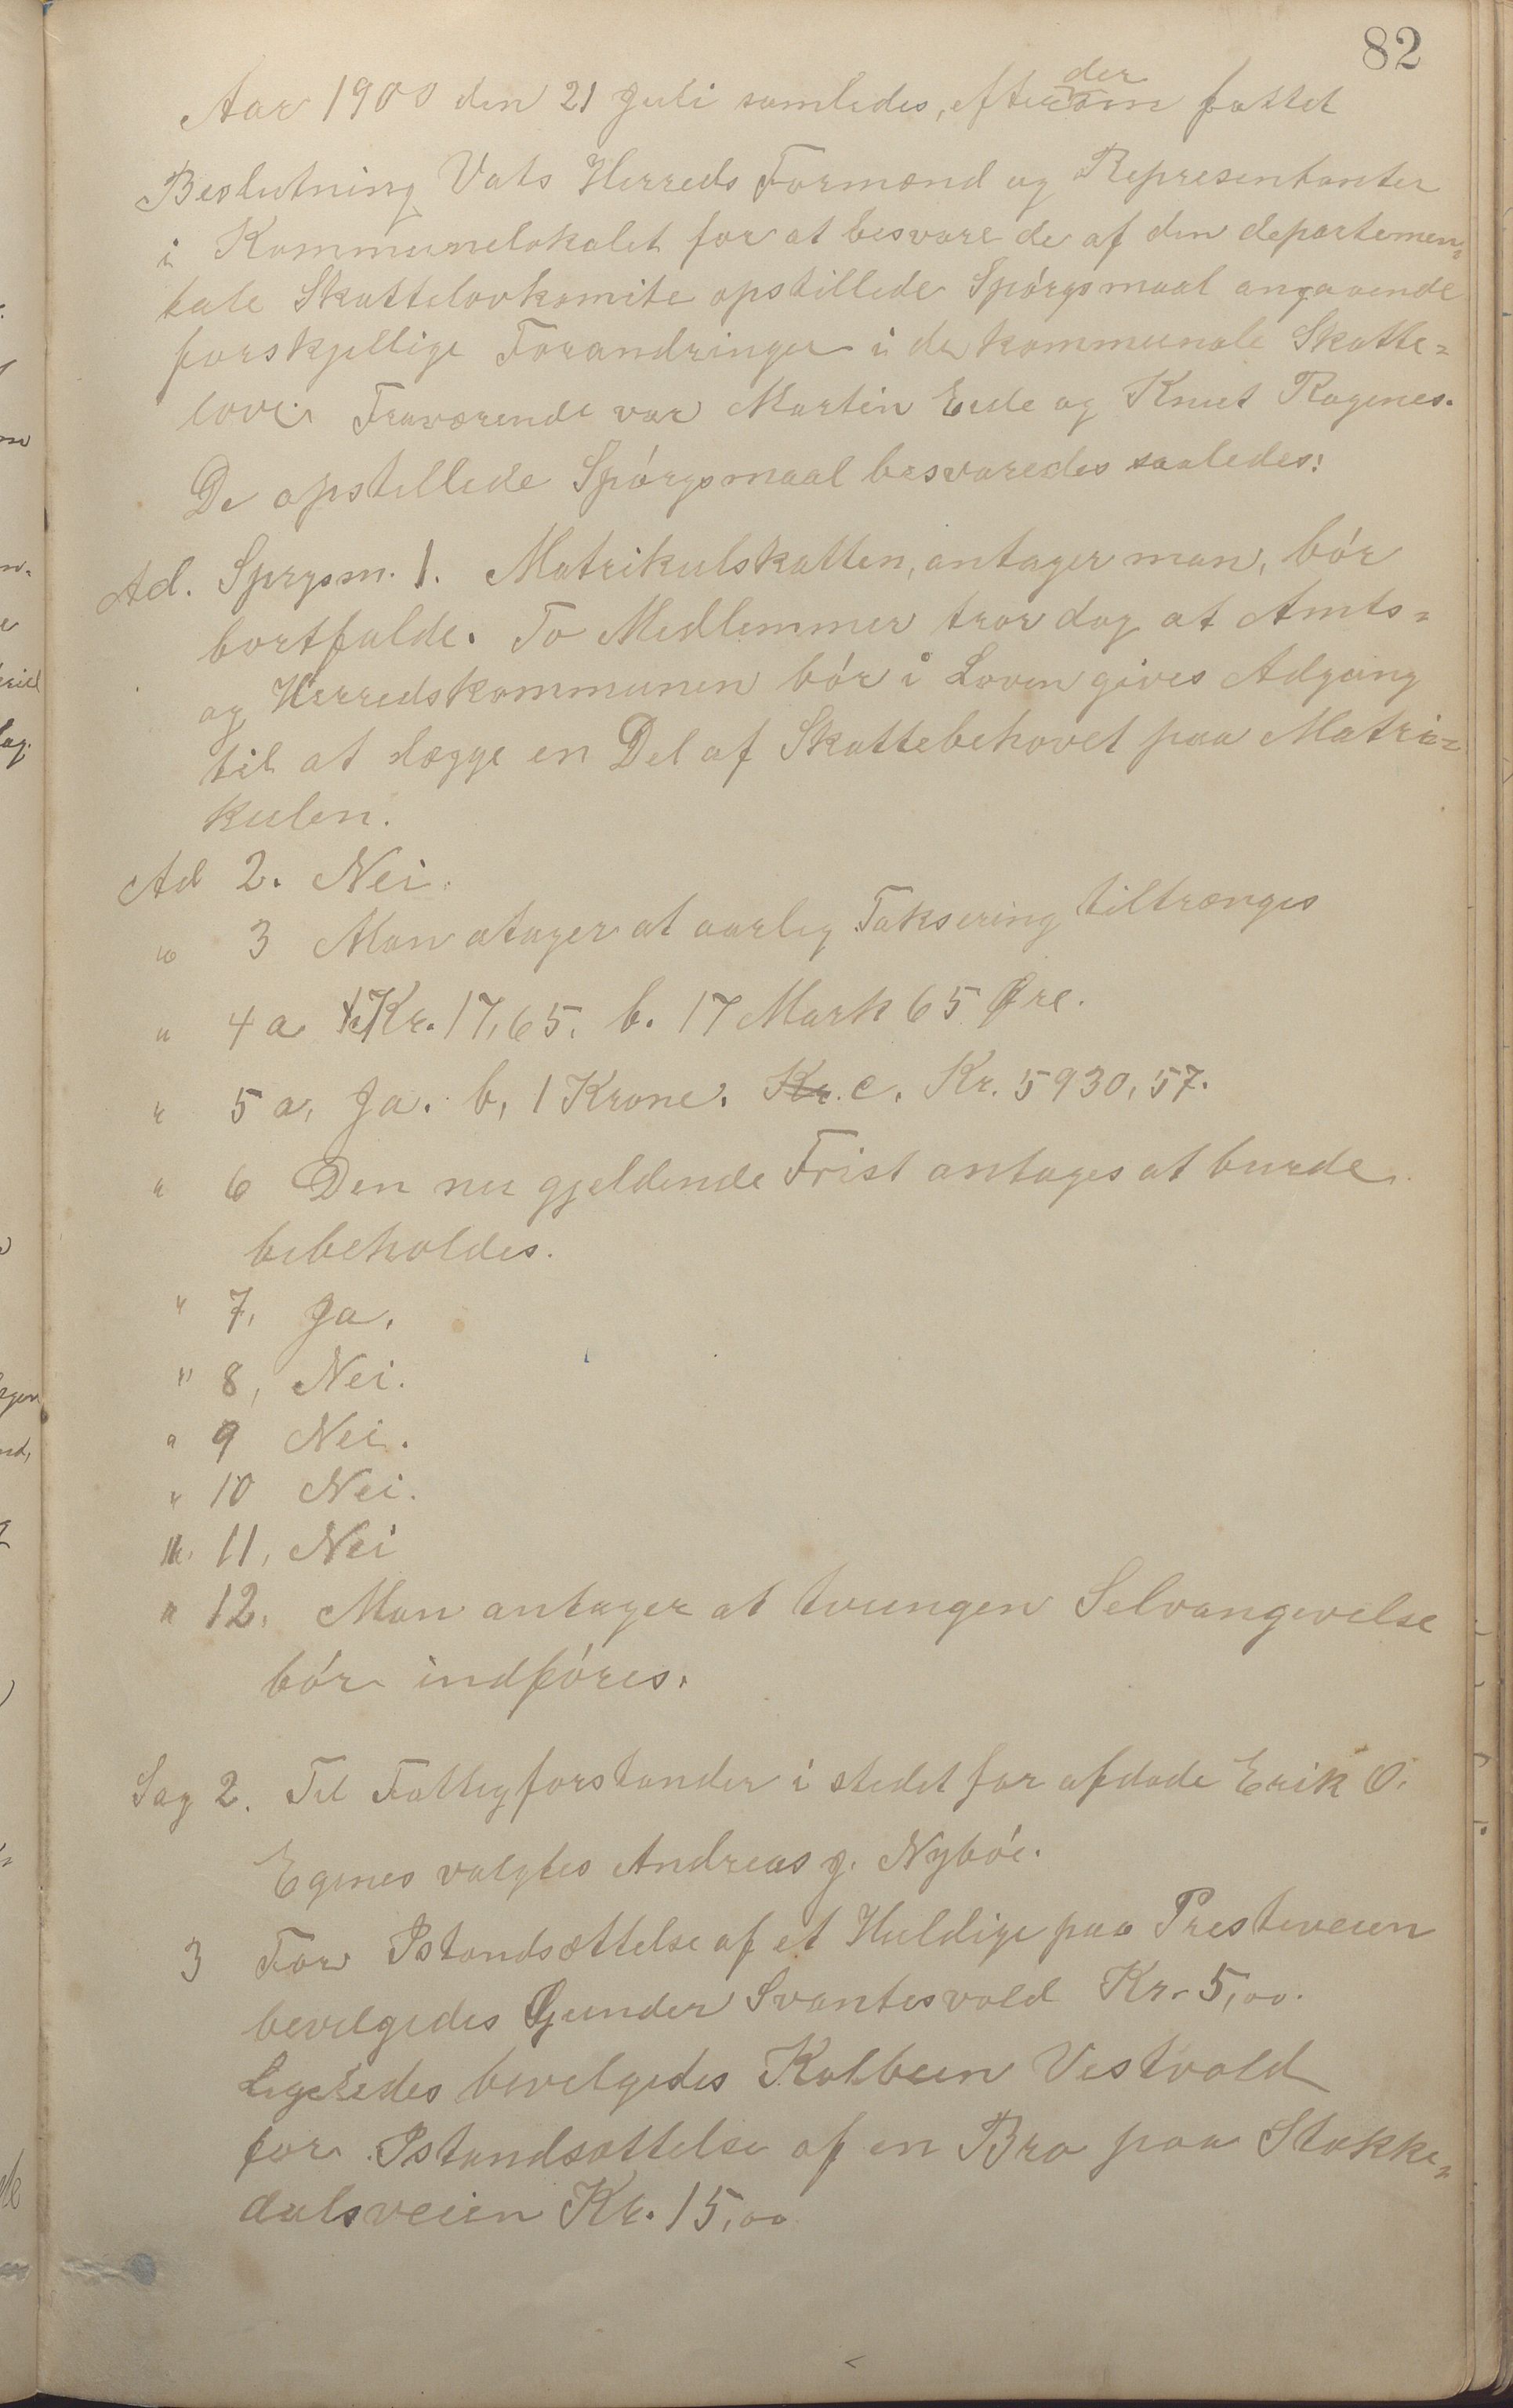 82
Aar 1900 den 21 Juli samledes, efter der om fattet
Beslutning Vats Herreds Formænd og Representanter
i Kommunelokalet for at besvare de af den departemen=
tale Skattelovkomite opstillede Spórgsmaal angaaende
forskjellige Forandringer i de kommunale Skatte=
love. Fraværende var Martin Eide og Knut Ragenes.
De opstillede Spórgsmaal besvaredes saaledes:
Ad. Sprgsm. 1. Matrikulskatten, antager man, bór
bortfalde. To Medlemmer tror dog at Amts=
og Herredskommunen bór i Loven gives Adgang
til at lægge en Del af Skattebehovet paa Matri=
kulen.
Ad 2. Nei.
" 3 Man atager at aarlig Taksering tiltrænges
" 4 a Kr. 17,65. b. 17 Mark 65 Øre.
" 5 a, Ja. b, 1 Krone. Kr. c. Kr. 5930,57.
" 6 Den nu gjeldende Frist antages at burde
bibeholdes.
" 7, Ja.
" 8, Nei.
" 9 Nei.
" 10 Nei.
" 11, Nei
" 12. Man antager at tvungen Selvangivelse
bór indfóres.
Sag 2. Til Fattigforstander i stedet for afdøde Erik O.
Egenes valgtes Andreas J. Nybóe.
3 For Istandsættelse af et Huldige paa Presteveien
bevilgedes Gunder Svantesvold Kr. 5,00.
Ligeledes bevilgedes Kolbein Vestvold
for Istandsættelse af en Bro paa Stokke=
dalsveien Kr. 15,00